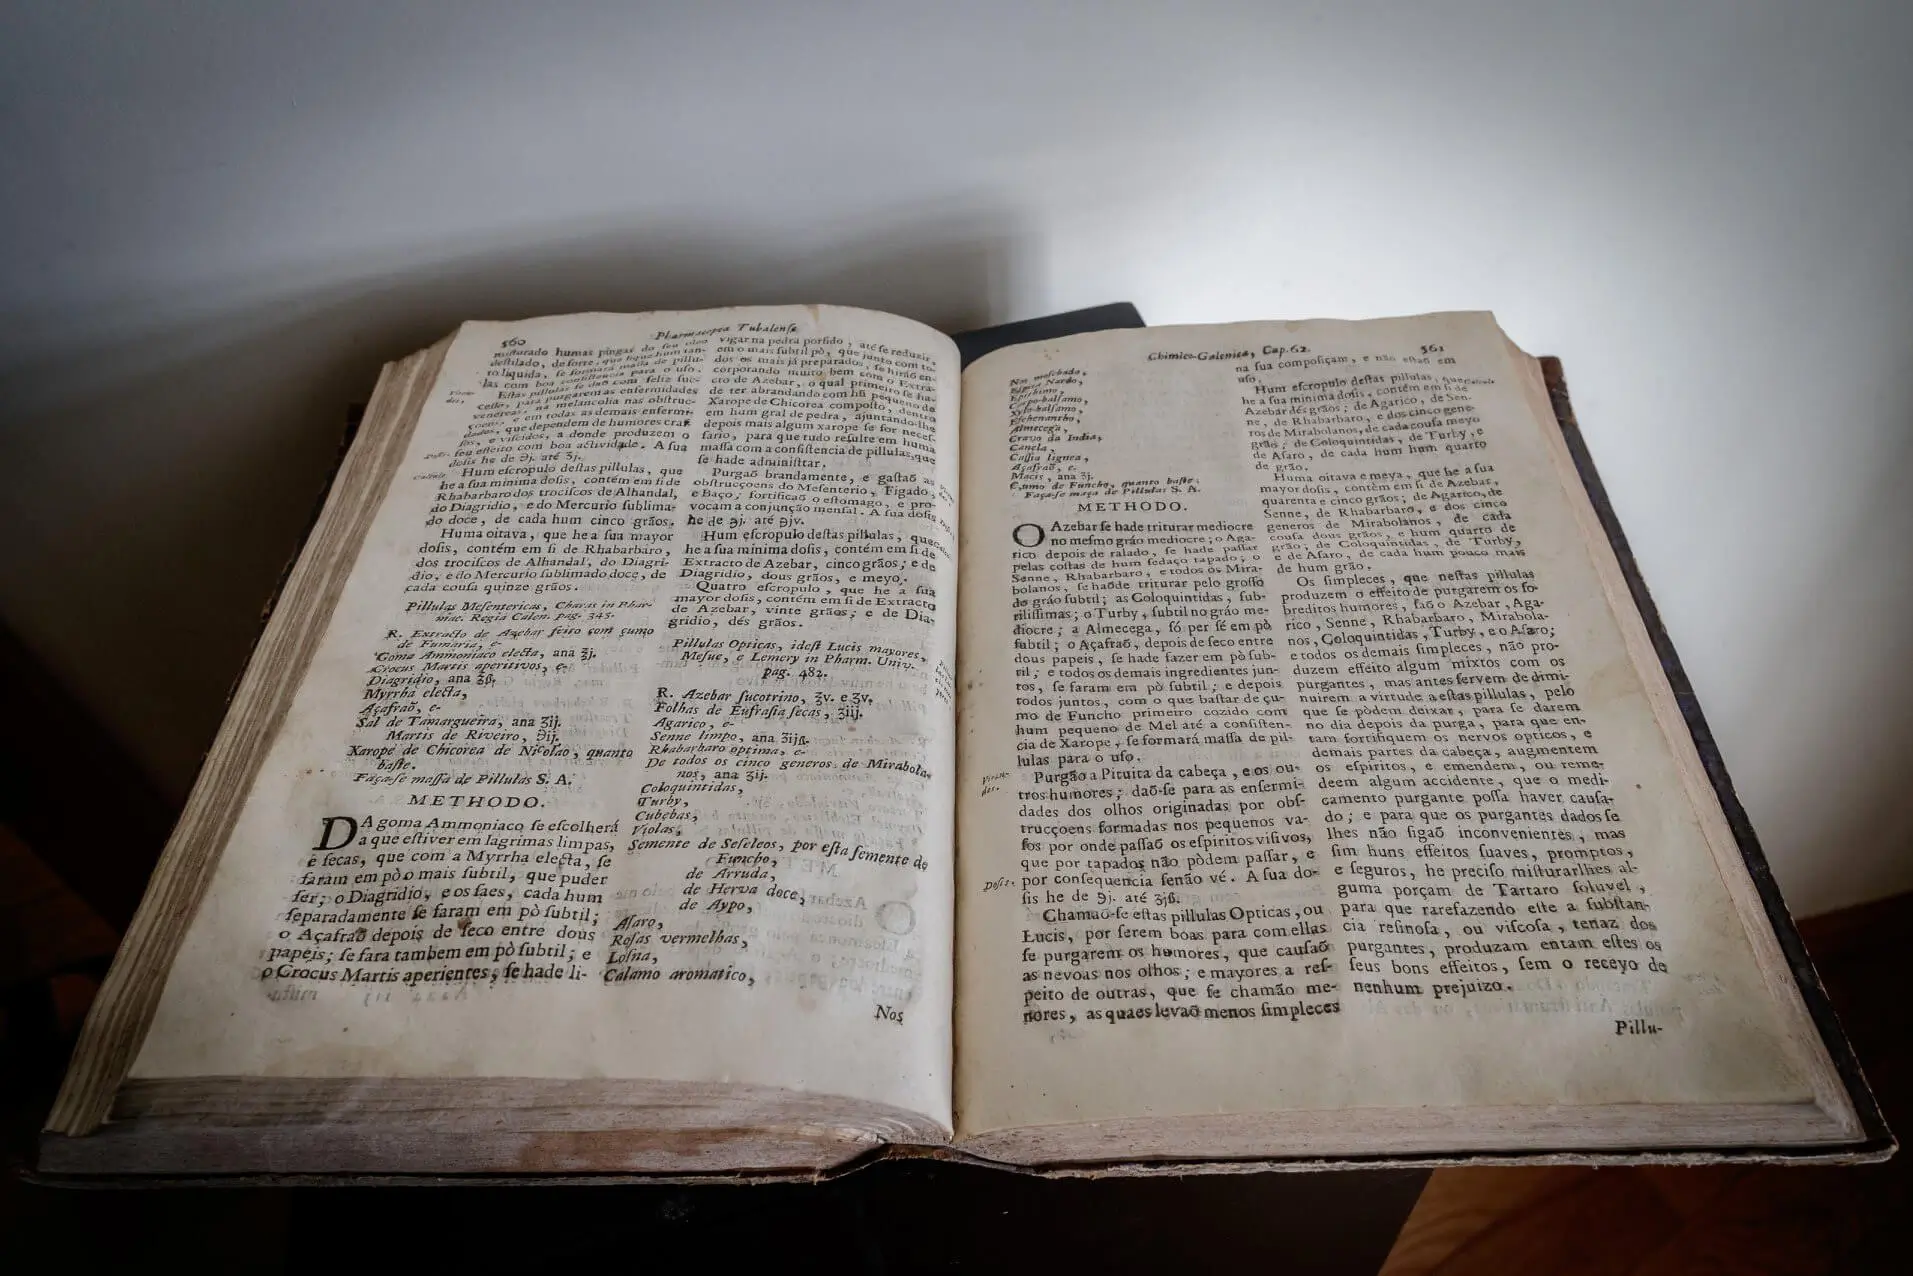 560
Pharmacopea Tubalense
misturado humas pingas do seu oleo
destilado, de sorte, que fique hum tan-
to liquida, se formará massa de pillu-
las com boa consistencia para o uso.
Estas pillulas se daõ com feliz suc-
cesso, para purgarem as enfermidades
venereas, na melancolia nas obstruc-
çoens, e em todas as demais enfermi-
dades, que dependem de humores cras-
sos, e viscidos, a donde produzem o
seu effeito com boa actividade. A sua
dosis he de ℈j. até ʒj.
Hum escropulo destas pillulas, que
he a sua minima dosis, contém em si de
Rhabarbaro dos trociscos de Alhandal,
do Diagridio, e do Mercurio sublima-
do doce, de cada hum cinco grãos.
Huma oitava, que he a sua mayor
dosis, contém em si de Rhabarbaro,
dos trociscos de Alhandal, do Diagri-
dio, e do Mercurio sublimado doce, de
cada cousa quinze grãos.
Pillulas Mesentericas, Charas in Phar-
mac. Regia Galen. pag. 345.
R. Extracto de Azebar feito com çumo
de Fumaria, e-
Goma Ammoniaco electa, ana ʒj.
Crocus Martis aperitivos, e-
Diagridio, ana ʒß.
Myrrha electa,
Açafraõ, e-
Sal de Tamargueira, ana ʒij.
Martis de Riveiro, ℈ij.
Xarope de Chicorea de Nicolao, quanto
baste.
Faça-se massa de Pillulas S. A.
METHODO.
DA goma Ammoniaco se escolherá
a que estiver em lagrimas limpas,
e secas, que com a Myrrha electa, se
faram em pò o mais subtil, que puder
ser; o Diagridio, e os saes, cada hum
separadamente se faram em pò subtil;
o Açafraõ depois de seco entre dous
papeis; se fara tambem em pò subtil; e
o Crocus Martis aperientes, se hade li-
vigar na pedra porfido, até se reduzir
em o mais subtil pò, que junto com to-
dos os mais já preparados, se hiráõ en-
corporando muito bem com o Extra-
cto de Azebar, o qual primeiro se ha-
de ter abrandando com hũ pequeno de
Xarope de Chicorea composto, dentro
em hum gral de pedra, ajuntando-lhe
depois mais algum xarope se for neces-
sario, para que tudo resulte em huma
massa com a consistencia de pillulas, que
se hade administar.
Purgaõ brandamente, e gastaõ as
obstrucçoens do Mesenterio, Figado,
e Baço; fortificaõ o estomago, e pro-
vocam a conjunção mensal. A sua dosis
he de ℈j. até ℈jv.
Hum escropulo destas pillulas, que
he a sua minima dosis, contém em si de
Extracto de Azebar, cinco grãos; e de
Diagridio, dous grãos, e meyo.
Quatro escropulo, que he a sua
mayor dosis, contém em si de Extracto
de Azebar, vinte grãos; e de Dia-
gridio, dés grãos.
Pillulas Opticas, idest Lucis mayores,
Mesue, e Lemery in Pharm. Univ.
pag. 482.
R. Azebar sucotrino, ʒv. e ℈v.
Folhas de Eufrasia secas, ʒiij.
Agarico, e-
Senne limpo, ana ʒijß.
Rhabarbaro optimo, e-
De todos os cinco generos de Mirabola-
nos, ana ʒij.
Coloquintidas,
Turby,
Cubebas,
Violas,
Semente de Seseleos, por esta semente de
Funcho,
de Arruda,
de Herva doce,
de Aypo,
Asaro,
Rosas vermelhas,
Losna,
Calamo aromatico,
Nos
Chimico-Galenica, Cap. 62.
561
Nos moschado,
Spica Nardo,
Epithimo,
Carpo-balsamo,
Xylo-balsamo,
Eschenantho,
Almecega,
Cravo da India,
Canela,
Cassia lignea,
Açafraõ, e-
Macis, ana ʒj.
Çumo de Funcho, quanto baste.
Faça-se maça de Pillulas S. A.
METHODO.
O Azebar se hade triturar mediocre
no mesmo gráo mediocre; o Aga-
rico depois de ralado, se hade passar
pelas costas de hum sedaço tapado; o
Senne, Rhabarbaro, e todos os Mira-
bolanos, se haõde triturar pelo grosso
do gráo subtil; as Coloquintidas, sub-
tilissimas; o Turby, subtil no gráo me-
diocre; a Almecega, só per sé em pò
subtil; o Açafraõ, depois de seco entre
dous papeis, se hade fazer em pò sub-
til; e todos os demais ingredientes jun-
tos, se faram em pò subtil; e depois
todos juntos, com o que bastar de çu-
mo de Funcho primeiro cozido com
hum pequeno de Mel até a consisten-
cia de Xarope, se formará massa de pil-
lulas para o uso.
Purgão a Pituita da cabeça, e os ou-
tros humores; daõ-se para as enfermi-
dades dos olhos originadas por obs-
trucçoens formadas nos pequenos va-
sos por onde passaõ os espiritos visivos,
que por tapados não pòdem passar, e
por consequencia senão vé. A sua do-
sis he de ℈j. até ʒjß.
Dosis.
Chamaõ-se estas pillulas Opticas, ou
Lucis, por serem boas para com ellas
se purgarem os humores, que causaõ
as nevoas nos olhos; e mayores a res-
peito de outras, que se chamão me-
nores, as quaes levaõ menos simpleces
na sua composiçam, e não estaõ em
uso.
Hum escropulo destas pillulas, que
he a sua minima dosis, contém em si de
Azebar dés grãos; de Agarico, de Sen-
ne, de Rhabarbaro, e dos cinco gene-
ros de Mirabolanos, de cada cousa meyo
grão; de Coloquintidas, de Turby, e
de Asaro, de cada hum hum quarto
de grão.
Huma oitava e meya, que he a sua
mayor dosis, contém em si de Azebar,
quarenta e cinco grãos; de Agarico, de
Senne, de Rhabarbaro, e dos cinco
generos de Mirabolanos, de cada
cousa dous grãos, e hum quarto de
grão; de Coloquintidas, de Turby,
e de Asaro, de cada hum pouco mais
de hum grão.
Os simpleces, que nestas pillulas
produzem o effeito de purgarem os so-
breditos humores, saõ o Azebar, Aga-
rico, Senne, Rhabarbaro, Mirabola-
nos, Coloquintidas, Turby, e o Asaro;
e todos os demais simpleces, não pro-
duzem effeito algum mixtos com os
purgantes, mas antes servem de dimi-
nuirem a virtude a estas pillulas, pelo
que se pòdem deixar, para se darem
no dia depois da purga, para que en-
tam fortifiquem os nervos opticos, e
demais partes da cabeça, augmentem
os espiritos, e emendem, ou reme-
deem algum accidente, que o medi-
camento purgante possa haver causa-
do; e para que os purgantes dados se
lhes não sigaõ inconvenientes, mas
sim huns effeitos suaves, promptos,
e seguros, he preciso misturarlhes al-
guma porçam de Tartaro soluvel,
para que rarefazendo este a substan-
cia resinosa, ou viscosa, tenaz dos
purgantes, produzam entam estes os
seus bons effeitos, sem o receyo de
nenhum prejuizo.
Pillu-